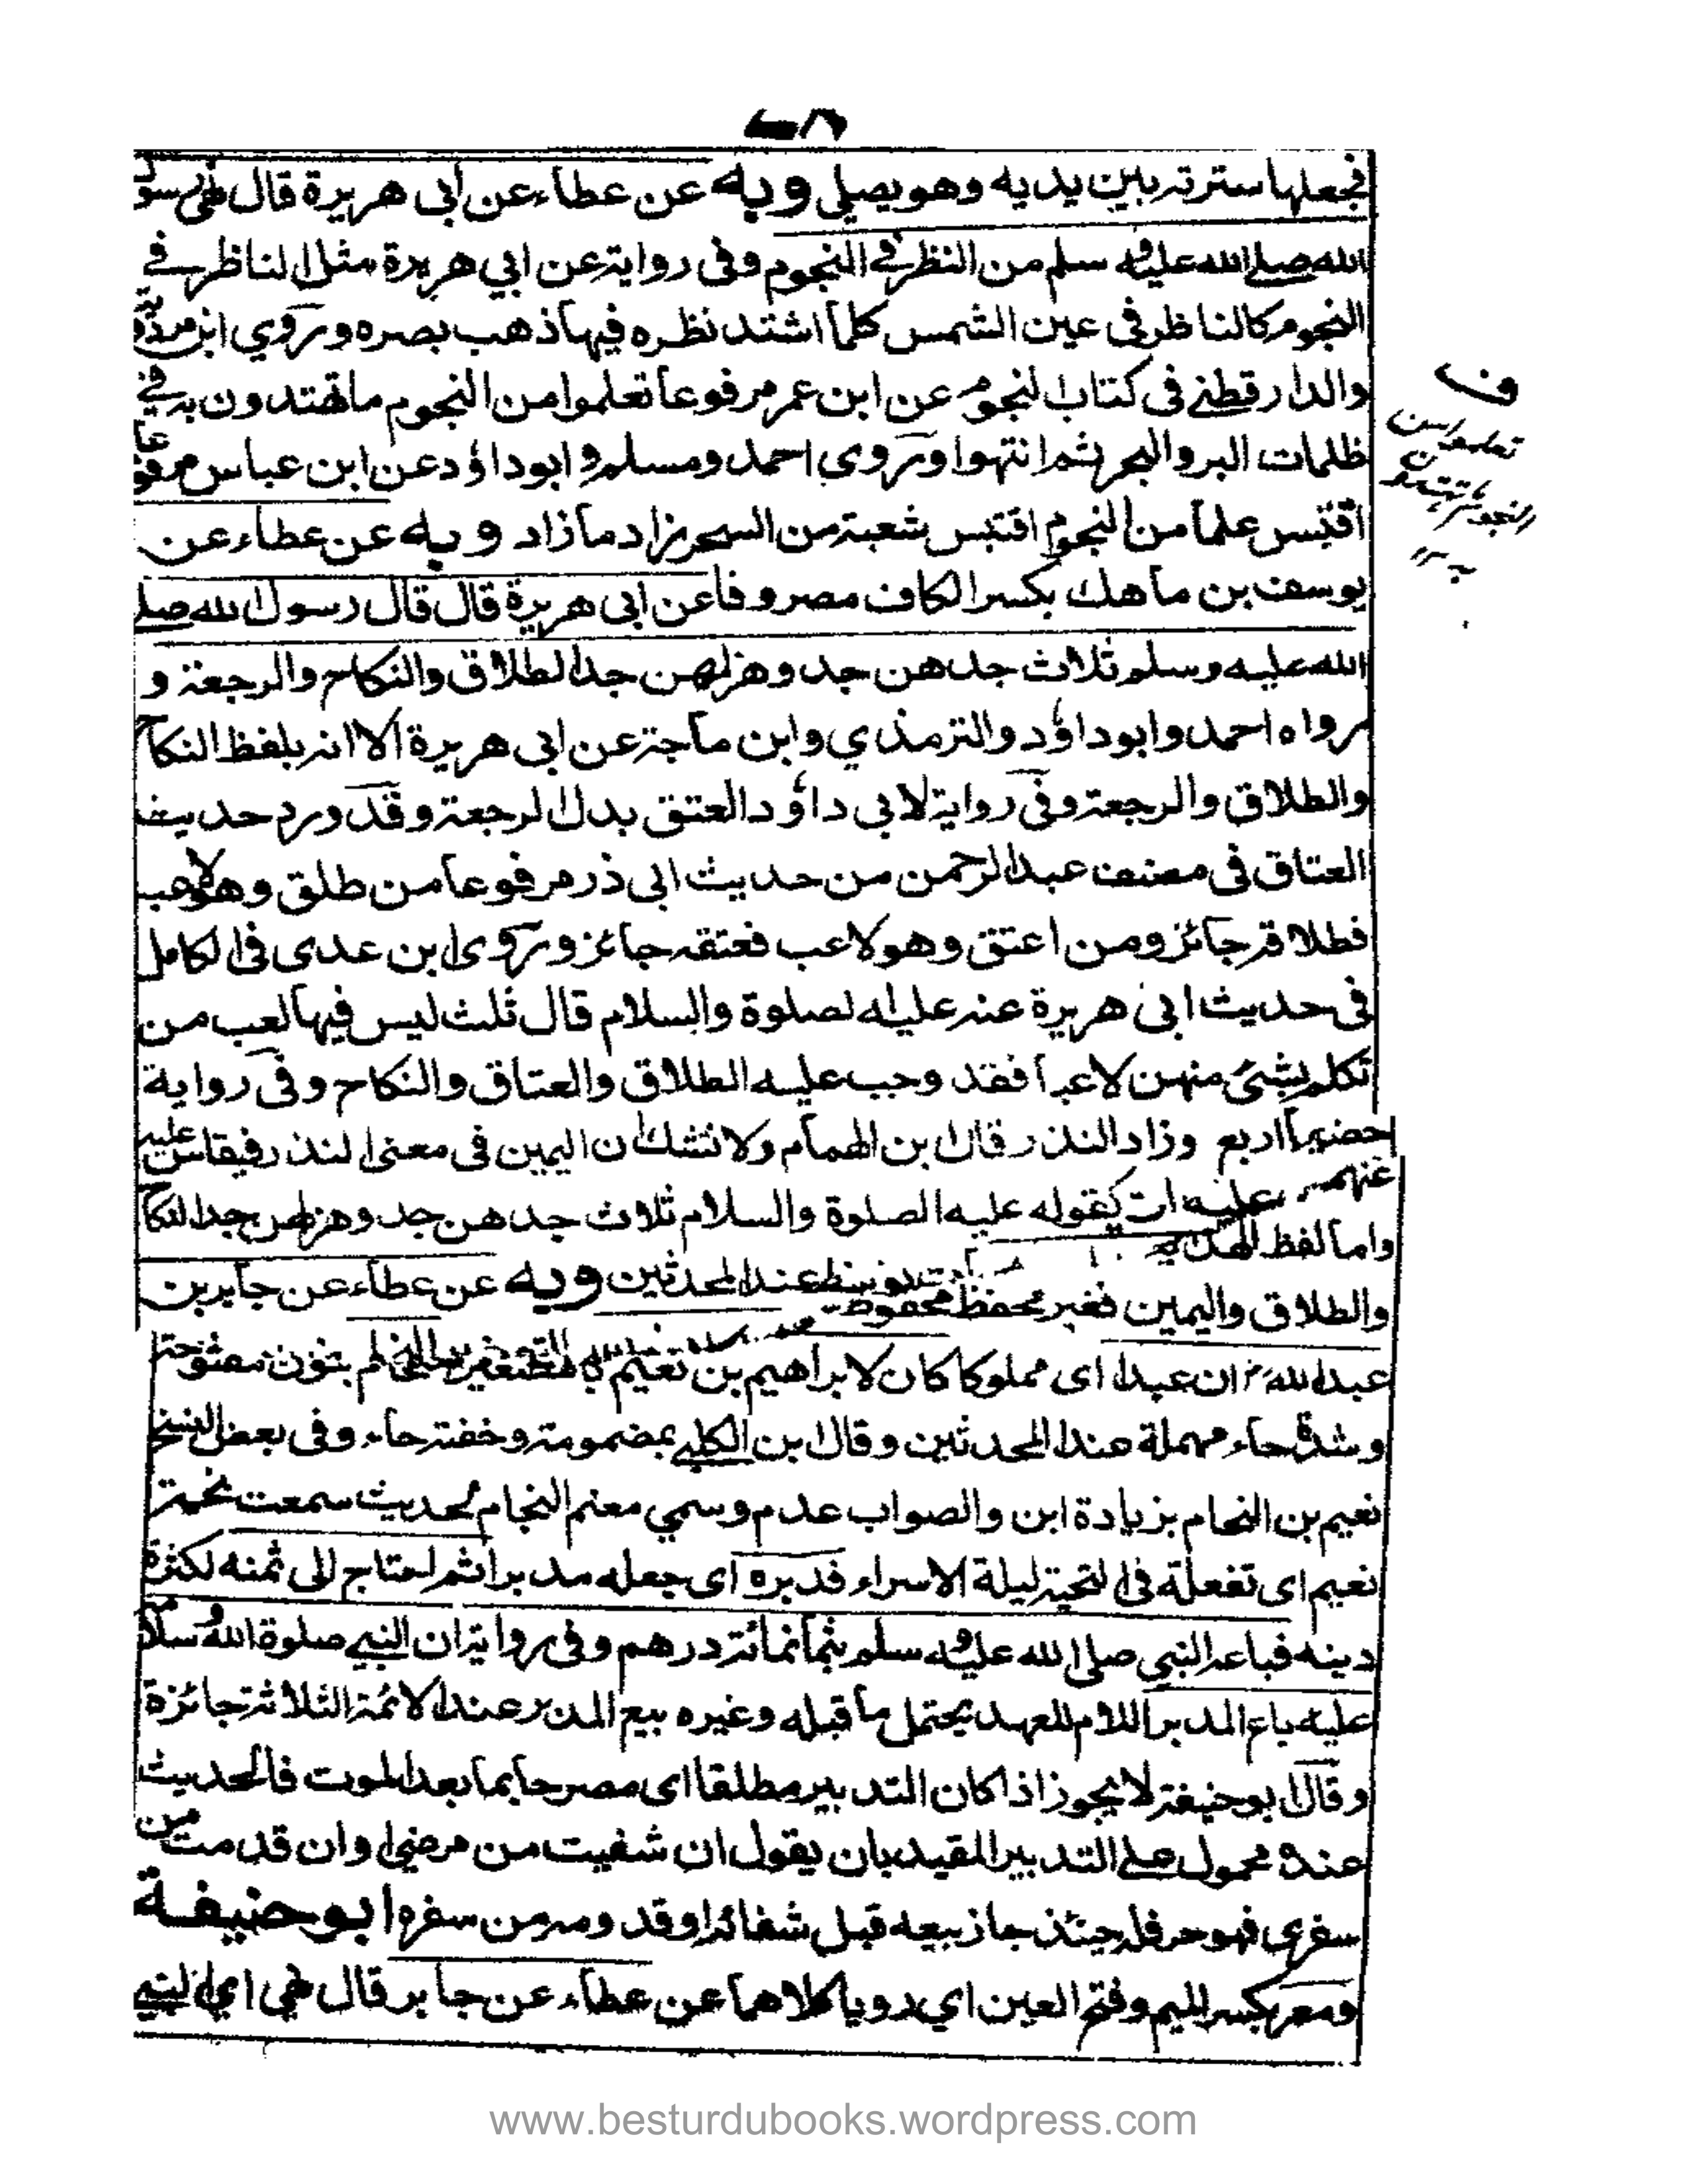 فجعلها سترته بين يديه وهو يصلي وبه عن عطاء عن أبي هريرة قال نهى رسول
الله صلے الله عليه وسلم من النظر في النجوم وفى رواية عن ابي هريرة مثل الناظر في
النجوم كالناظر فى عين الشمس كلما اشتد نظره فيها ذهب بصره وروي ابن مردويه
والدارقطنے فى كتاب النجوم عن ابن عمر مرفوعا تعلموا من النجوم ما تهتدون به في
ظلمات البر والبحر ثم انتهوا وروى احمد ومسلم وابو داؤد عن ابن عباس مرفوعا
اقتبس علما من النجوم اقتبس شعبة من السحر زاد ما زاد وبه عن عطاء عن
يوسف بن ماهك بكسر الكاف مصروفا عن ابى هريرة قال قال رسول الله صلے
الله عليه وسلم ثلاث جدهن جد وهزلهن جد الطلاق والنكاح والرجعة و
رواه احمد وابو داؤد والترمذي وابن ماجة عن ابى هريرة الا انه بلفظ النكاح
والطلاق والرجعة وفى رواية لابى داؤد العتق بدل الرجعة وقد ورد حديث
العتاق فى مصنف عبد الرحمن من حديث ابى ذر مرفوعا من طلق وهو لاعب
فطلاقه جائز ومن اعتق وهو لاعب فعتقه جائز وروى ابن عدى فى الكامل
فى حديث ابى هريرة عنه عليه الصلوة والسلام قال ثلث ليس فيها لعب من
تكلم بشئ منهن لاعبا فقد وجب عليه الطلاق والعتاق والنكاح وفى رواية
اربع وزاد النذر قال ابن الهمام ولا نشك ان اليمين فى معنى النذر فيقاس عليه
عليه الصلوة والسلام ثلاث جدهن جد وهزلهن جد النكاح
واما لفظ
عند المحدثين وبه عن عطاء عن جابر بن
والطلاق واليمين فغير محفوظ
عبد الله ان عبدا اى مملوكا كان لابراهيم بن نعيم بنون مفتوحة
وشدة حاء مهملة عند المحدثين وقال ابن الكلبے بمضمومة وخفة حاء وفى بعض النسخ
نعيم بن النحام بزيادة ابن والصواب عدم وسمي النحام لحديث سمعت نحمة
نعيم اى ليلة الاسراء فدبره اى جعله مدبرا ثم احتاج الى ثمنه لكثرة
دينه فباعه النبي صلى الله عليه وسلم بثمانمائة درهم وفى رواية ان النبے صلوة الله وسلامه
عليه باع المدبر اللام للعهد يحتمل ما قبله وغيره بيع المدبر عند الائمة الثلاثة جائزة
وقال ابو حنيفة لا يجوز اذا كان التدبير مطلقا اى مصرحا بما بعد الموت فالحديث
عنده محمول علے التدبير المقيد بان يقول ان شفيت من مرضى او ان قدمت من
سفرى فهو حر جاز بيعه قبل شفائه او من سفره ابو حنيفة
ومسعر بكسر الميم وفتح العين اي رويا كلاهما عن عطاء عن جابر قال نهي اي النبے
ف
www.besturdubooks.wordpress.com